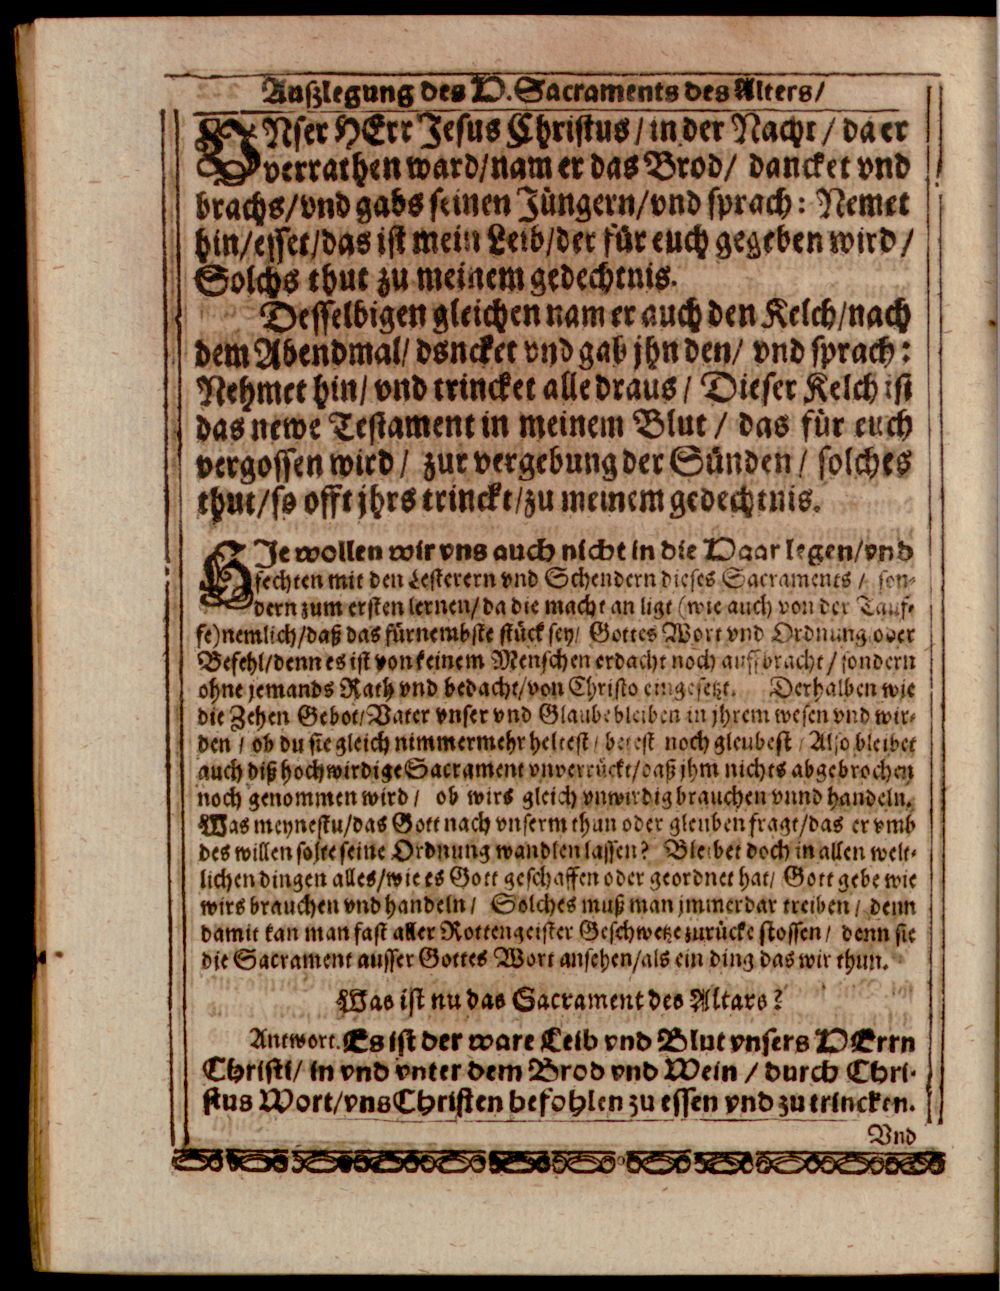 Außlegung des H. Sacraments des Alters/
VNser HErr Jesus Christus/ in der Nacht/ da er
verrathen ward/nam er das Brod/ dancket vnd
brachs/vnd gabs seinen Jüngern/vnd sprach: Nemet
hin/esset/das ist mein Leib/der für euch gegeben wird/
Solchs thut zu meinem gedechtnis.
Desselbigen gleichen nam er auch den Kelch/nach
dem Abendmal/ dancket vnd gab jhn den/ vnd sprach:
Nehmet hin/ vnd trincket alle draus/ Dieser Kelch ist
das newe Testament in meinem Blut/ das für euch
vergossen wird/ zur vergebung der Sünden/ solches
thut/so offt jhrs trinckt/zu meinem gedechtnis.
HIe wollen wir vns auch nicht in die Haar legen/vnd
fechten mit den Lesterern vnd Schendern dieses Sacraments/ son-
dern zum ersten lernen/da die macht an ligt (wie auch von der Tauf-
fe) nemlich/daß das fürnembste stück sey/ Gottes Wort vnd Ordnung oder
Befehl/denn es ist von keinem Menschen erdacht noch auffbracht/sondern
ohne jemands Rath vnd bedacht/von Christo eingesetzt. Derhalben wie
die Zehen Gebot/Vater vnser vnd Glaube bleiben in jhrem wesen vnd wir-
den/ ob du sie gleich nimmermehr heltest/ betest noch gleubest/ Also bleibet
auch diß hochwirdige Sacrament vnverrückt/daß jhm nichts abgebrochen
noch genommen wird/ ob wirs gleich vnwirdig brauchen vnnd handeln.
Was meynestu/das Gott nach vnserm thun oder gleuben fragt/das er vmb
des willen solte seine Ordnung wandlen lassen? Bleibet doch in allen welt-
lichen dingen alles/wie es Gott geschaffen oder geordnet hat/ Gott gebe wie
wirs brauchen vnd handeln/ Solches muß man jmmerdar treiben/ denn
damit kan man fast aller Rottengeister Geschwetze zurücke stossen/ denn sie
die Sacrament ausser Gottes Wort ansehen/als ein ding das wir thun.
Was ist nu das Sacrament des Altars?
Antwort. Es ist der ware Leib vnd Blut vnsers HErrn
Christi/ in vnd vnter dem Brod vnd Wein/ durch Chri-
stus Wort/vns Christen befohlen zu essen vnd zu trincken.
Vnd